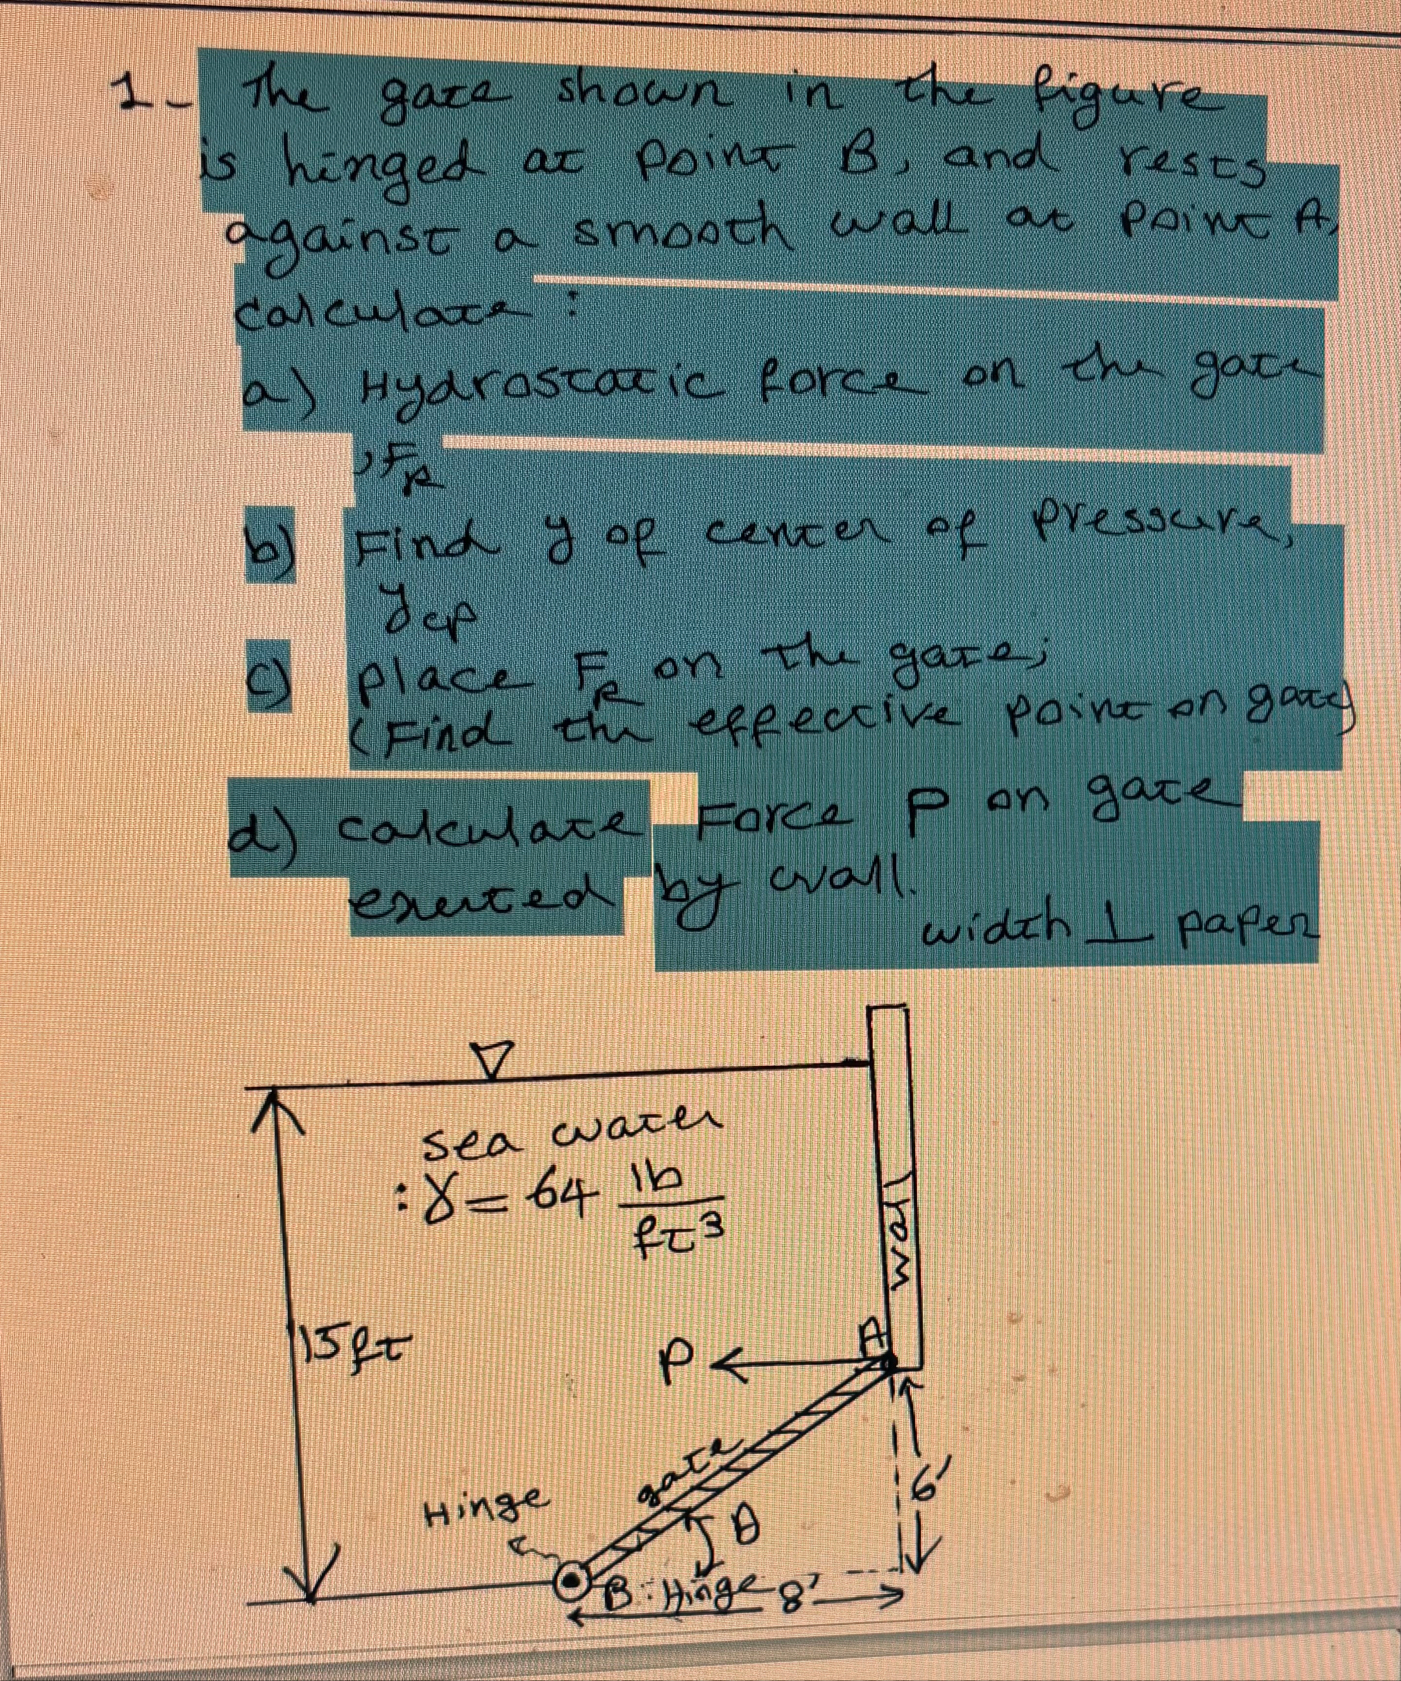 1- The gate shown in the figure
is hinged at point B, and rests
against a smooth wall at point A,
calculate :
a) Hydrostatic force on the gate
, FR
b) Find y of center of pressure,
ycp
c) place FR on the gate;
(Find the effective point on gate)
d) calculate Force P on gate
exerted by wall.
width ⊥ paper
sea water
: γ = 64 lb/ft3
wall
15ft
P
A
gate
6'
Hinge
θ
B : Hinge
8'